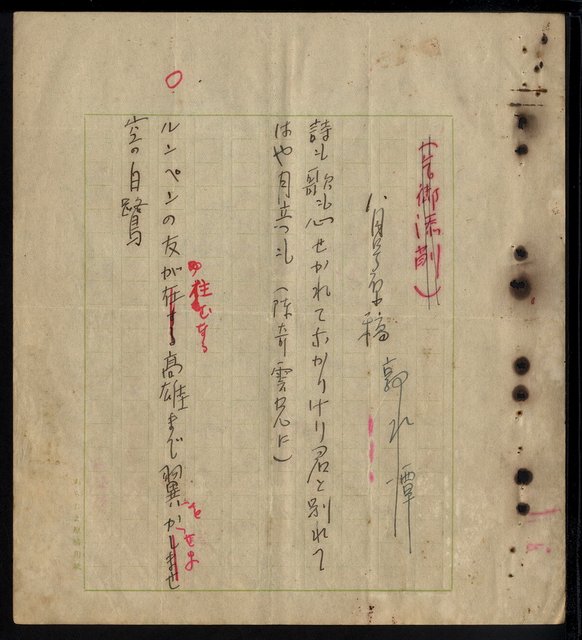 (乞御添削)
八月号原稿 郭水潭
詩も歌も心せかれてなかりけり君と別れて
はや月立つも (陳奇雲兄に)
○
ルンペンの友が在する高雄まで翼かしませ
の住むなる
をせよ
空の白鷺